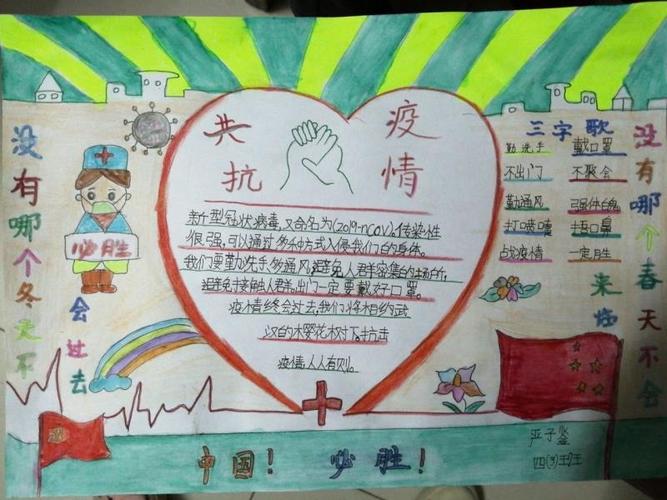 共抗疫情
新型冠状病毒,又命名为(2019-nCoV),传染性
很强,可以通过多种方式入侵我们的身体。
我们要勤洗手多通风,避免人群密集的场所,
避免接触人群,出门一定要戴好口罩。
疫情终会过去,我们将相约武
汉的木樱花树下,抗击
疫情,人人有则。
没有哪个冬天不会过去
必胜
三字歌
勤洗手 戴口罩
不出门 不聚会
勤通风 强体魄
打喷嚏 捂口鼻
战疫情 一定胜
没有哪个春天不会来临
中国! 必胜!
四(3)班